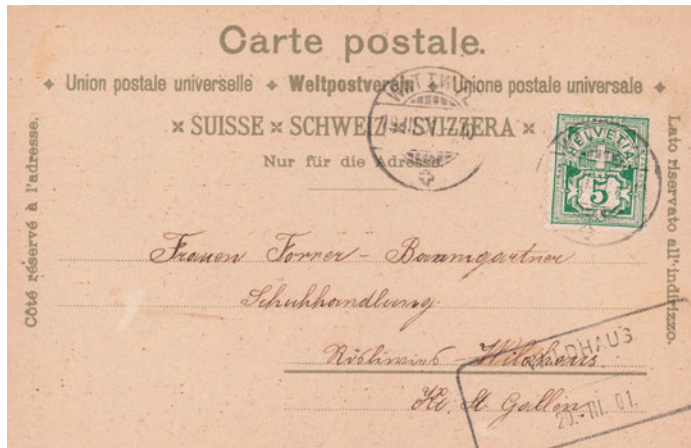 Carte postale.
Union postale universelle Weltpostverein Unione postale universale
SUISSE SCHWEIZ SVIZZERA
Nur für die Adresse.
Côté réservé à l'adresse.
Lato riservato all'indirizzo.
HELVETIA
5
Frauen Forrer - Baumgartner
Schuhhandlung
Wildhaus.
Kt. St. Gallen
WILDHAUS
20. III. 01.